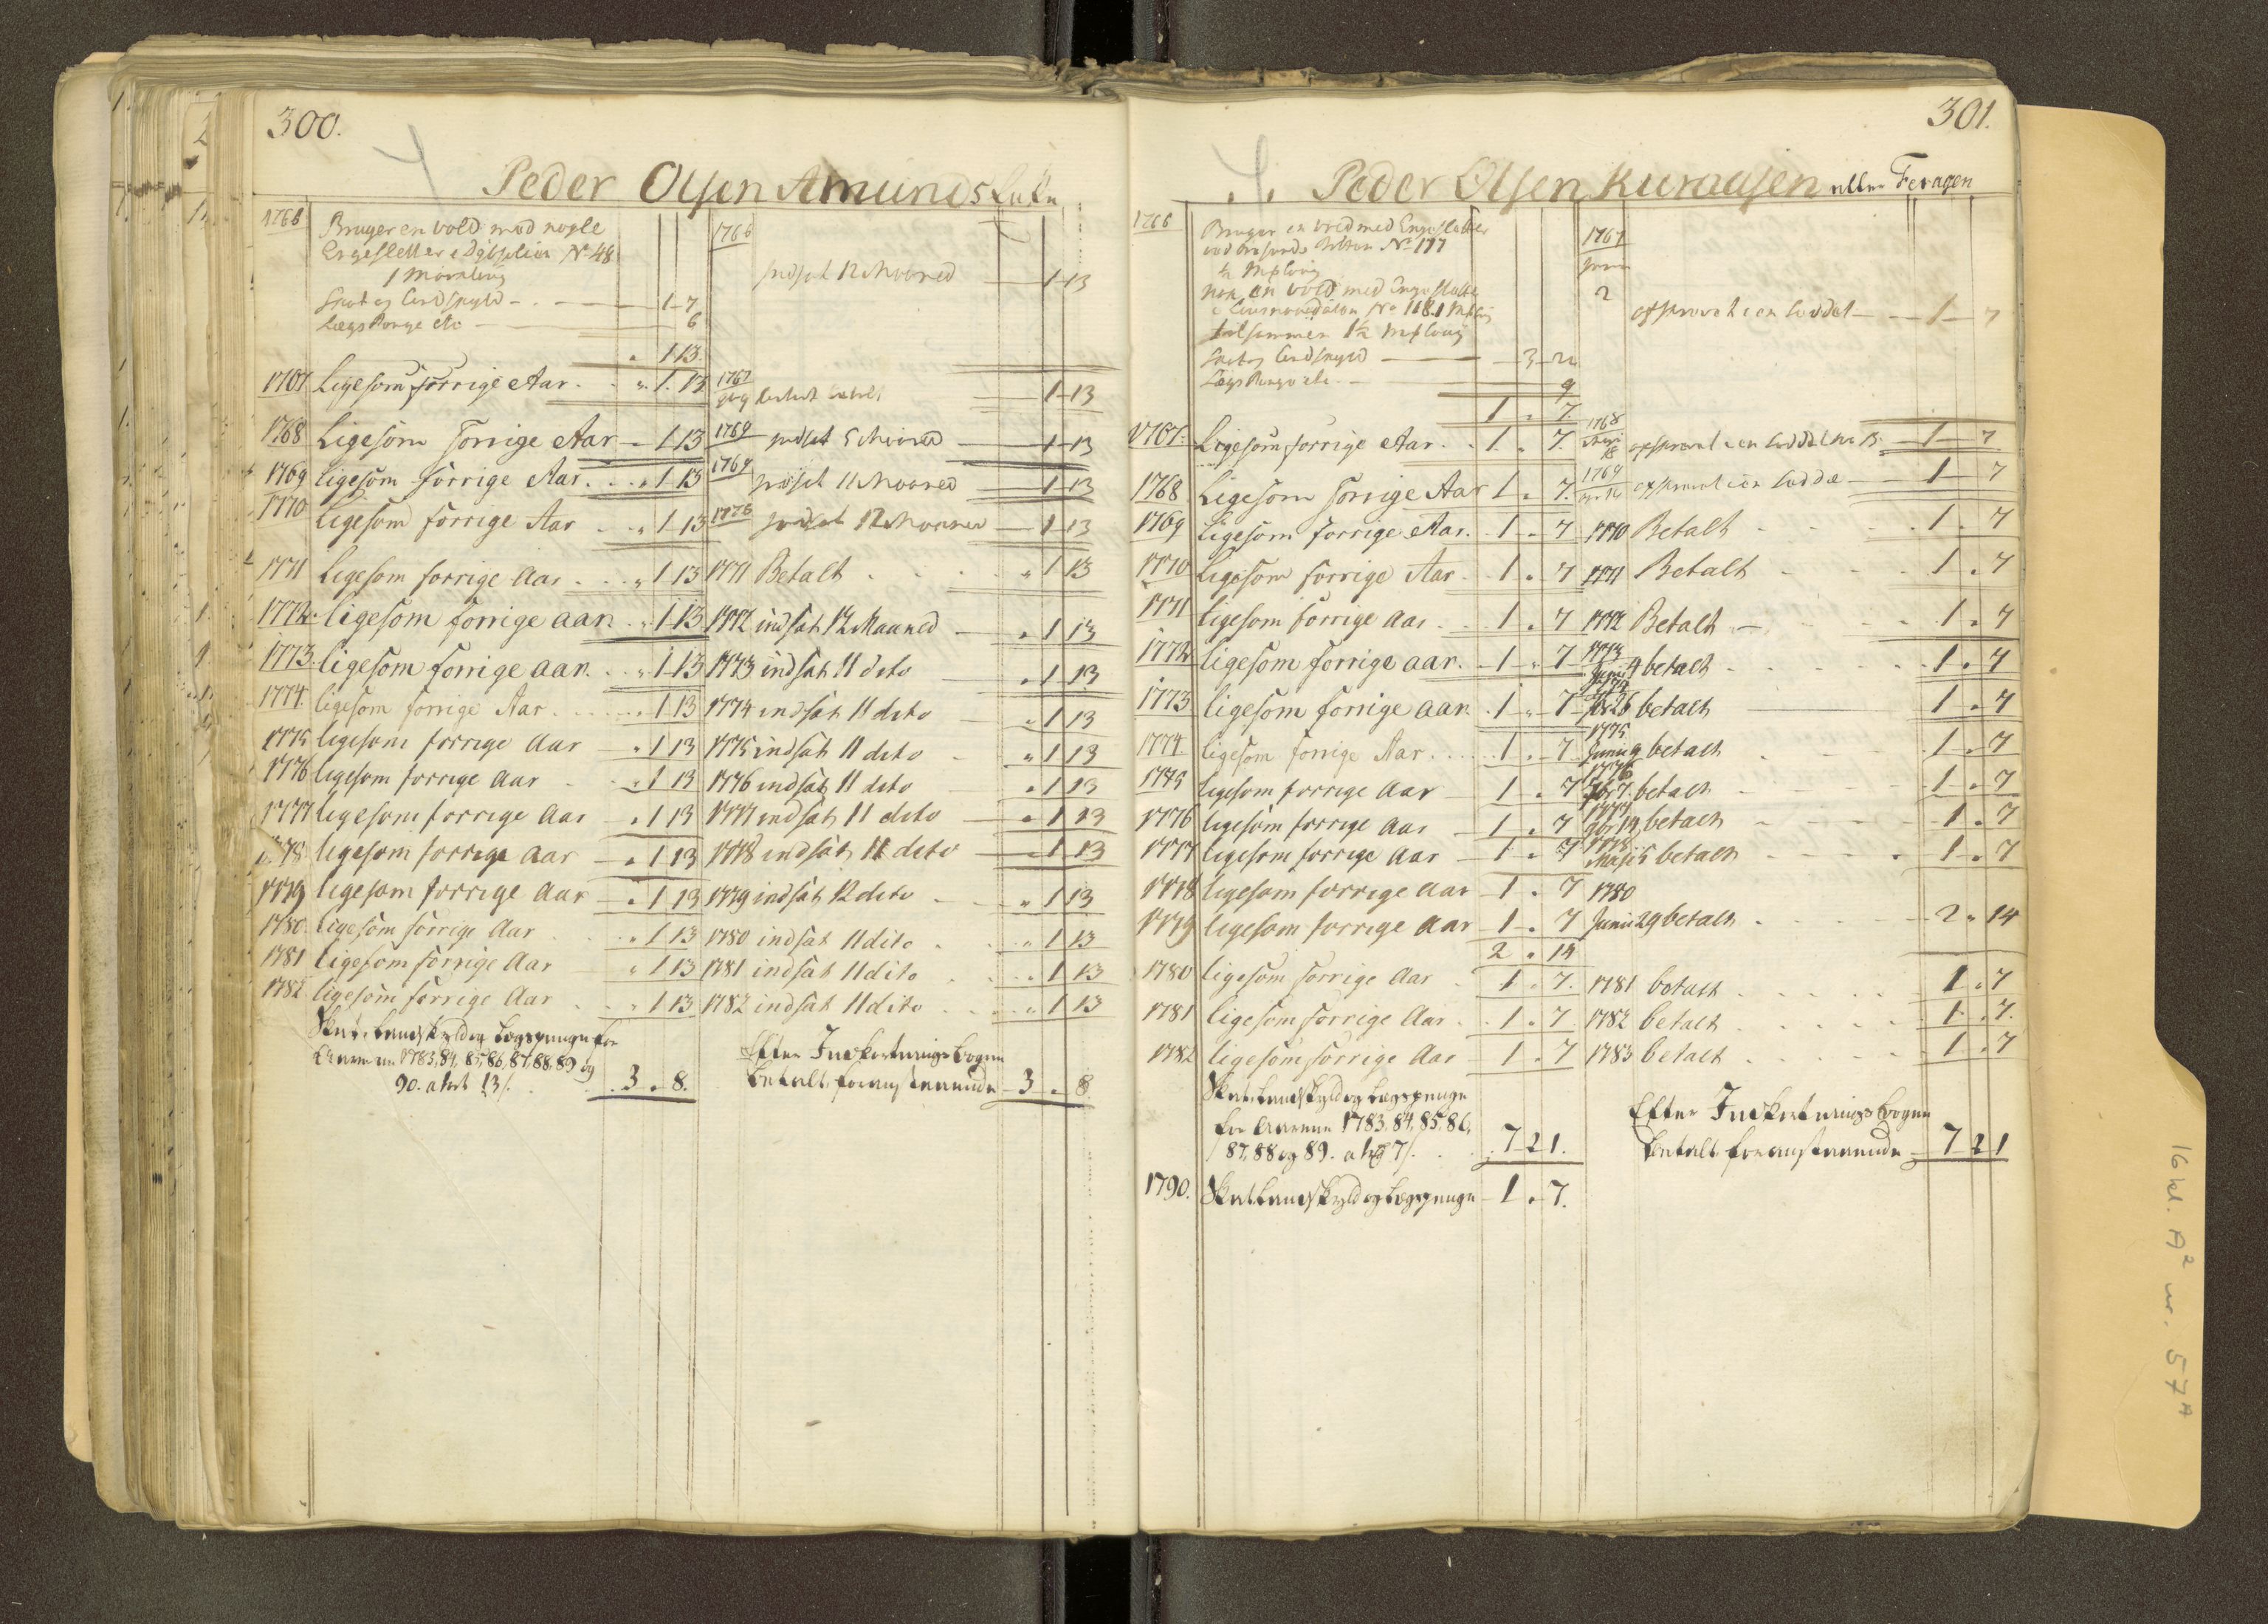 300.
Peder Olsen Amunds
1766 Bruger en vold med nogle 1766
Engesletter i N 48
1 Mæhling indsat 12 Maaned 1 13
Skat og Landskyld 1 7
Lægs Penge etc 6
1 13.
1767 Ligesom forrige Aar 1. 13 1767 betalt 1 13
1768 Ligesom forrige Aar 1 13 1769 indsat 5 Maaned 1 13
1769 ligesom forrige Aar 1 13 1769 indsat 11 Maaned 1 13
1770 Ligesom forrige Aar 1 13 1770 indsat 12 Maaned 1 13
1771 Ligesom forrige Aar 1 13 1771 Betalt 1 13
1772 ligesom forrige aar 1 13 1772 indsat 12 Maaned 1 13
1773 ligesom forrige aar 1 13 1773 indsat 11 dito 1 13
1774 ligesom forrige Aar 1 13 1774 indsat 11 dito 1 13
1775 ligesom forrige Aar 1 13 1775 indsat 11 dito 1 13
1776 ligesom forrige Aar 1 13 1776 indsat 11 dito 1 13
1777 ligesom forrige Aar 1 13 1777 indsat 11 dito 1 13
1778 ligesom forrige Aar 1 13 1778 indsat 11 dito 1 13
1779 ligesom forrige Aar 1 13 1779 indsat 12 dito 1 13
1780 ligesom forrige Aar 1 13 1780 indsat 11 dito 1 13
1781 ligesom forrige Aar 1 13 1781 indsat 11 dito 1 13
1782 ligesom forrige Aar 1 13 1782 indsat 11 dito 1 13
Skat, Landskyld og Lægspenge for Efter Indkortnings bogen
Aarene 1783, 84, 85, 86, 87, 88, 89 og
90. a 1 ort 13 s. 3. 8. betalt foranstaaende 3. 8.
301.
Peder Olsen Kuraasen eller Feragen
1766 Bruger en vold med Engesletter 1767
ved No 117
½ Mæhling 2
nok en vold med Engeslætte
No 118. 1 Mæhling opskrevet i en Seddel 1 7
tilsammen 1½ Mæhling
Skat og Landskyld 3 22
Lægs Penge etc. 9
1 . 7.
1767. Ligesom forrige Aar. 1 . 7. 1768 opskrevet i en Seddel 1 7
1768 Ligesom forrige Aar 1 . 7. 1769 opskrevet i en Seddel 1 7
1769 Ligesom forrige Aar. 1 . 7 1770 Betalt 1 . 7
1770 Ligesom forrige Aar 1 . 7 1771 Betalt 1 . 7
1771 ligesom forrige Aar 1 . 7 1772 Betalt 1 . 7
1772 ligesom forrige aar. 1 . 7 1773 Junii 4 betalt 1 . 7
1773 ligesom forrige aar 1 . 7 26 betalt 1 . 7
1774 ligesom forrige Aar 1 . 7 1775 Junii 9 betalt 1 . 7
1775 ligesom forrige Aar 1 . 7 1776 7 betalt 1 . 7
1776 ligesom forrige Aar 1 . 7 1777 19 betalt 1 . 7
1777 ligesom forrige Aar 1 . 7 1778 Maji 5 betalt 1 . 7
1778 ligesom forrige Aar 1 . 7 1780
1779 ligesom forrige Aar 1 . 7 Junii 29 betalt 2 . 14
2 . 14
1780 ligesom forrige Aar 1 . 7. 1781 betalt 1 . 7
1781 ligesom forrige Aar 1 . 7 1782 betalt 1 . 7.
1782 ligesom forrige Aar 1 . 7 1783 betalt 1 . 7
Skat, Landskyld og Lægspenge Efter Indkortnings bogen
for Aarene 1783, 84, 85, 86,
87, 88 og 89. a 7 s. 7 2 1. betalt foranstaaende 7 2 1
1790. Skat Landskyld og Lægspenge 1 . 7.
16 kl. A² nr. 57 A